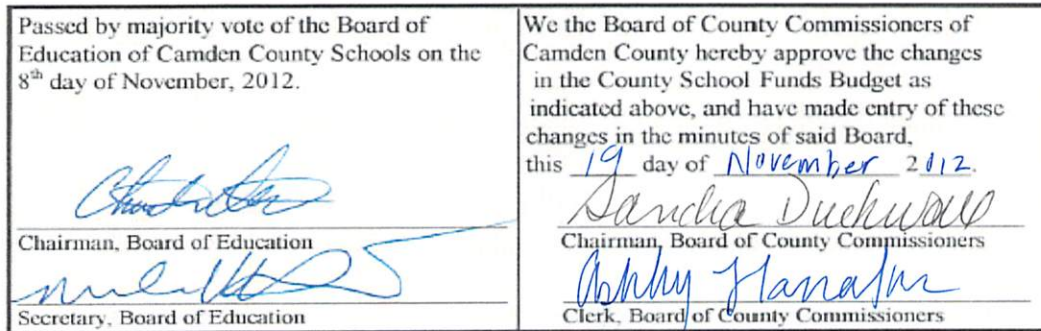 Passed by majority vote of the Board of
Education of Camden County Schools on the
8th day of November, 2012.
Chairman, Board of Education
Secretary, Board of Education
We the Board of County Commissioners of
Camden County hereby approve the changes
in the County School Funds Budget as
indicated above, and have made entry of these
changes in the minutes of said Board,
this 19 day of November 2012.
Sandra Duckwall
Chairman, Board of County Commissioners
Clerk, Board of County Commissioners